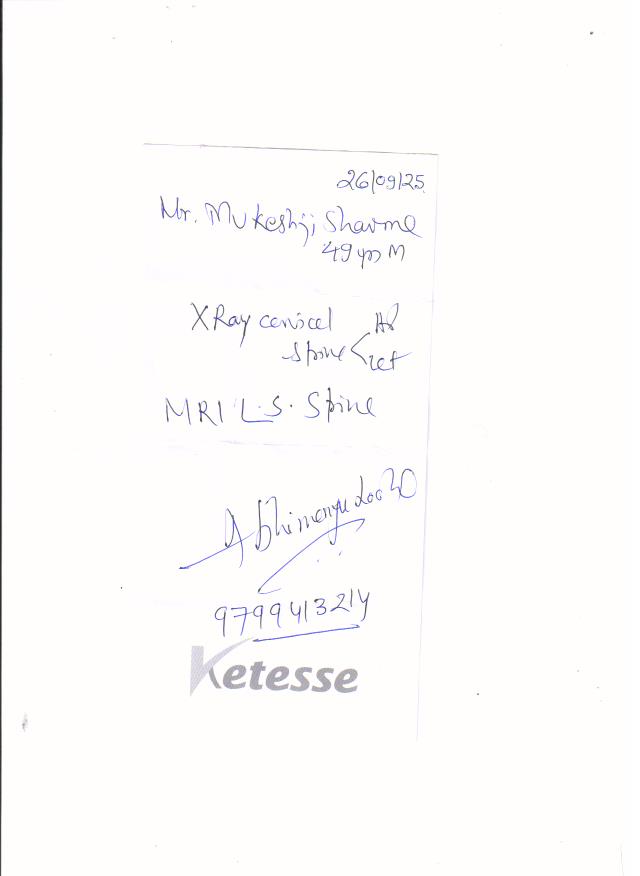 26/09/25
Mr. Mukeshji Sharma
49 yrs M
XRay cervical AP
Spine < Lat
MRI L.S. Spine
Abhimanyu
9799413214
Ketesse